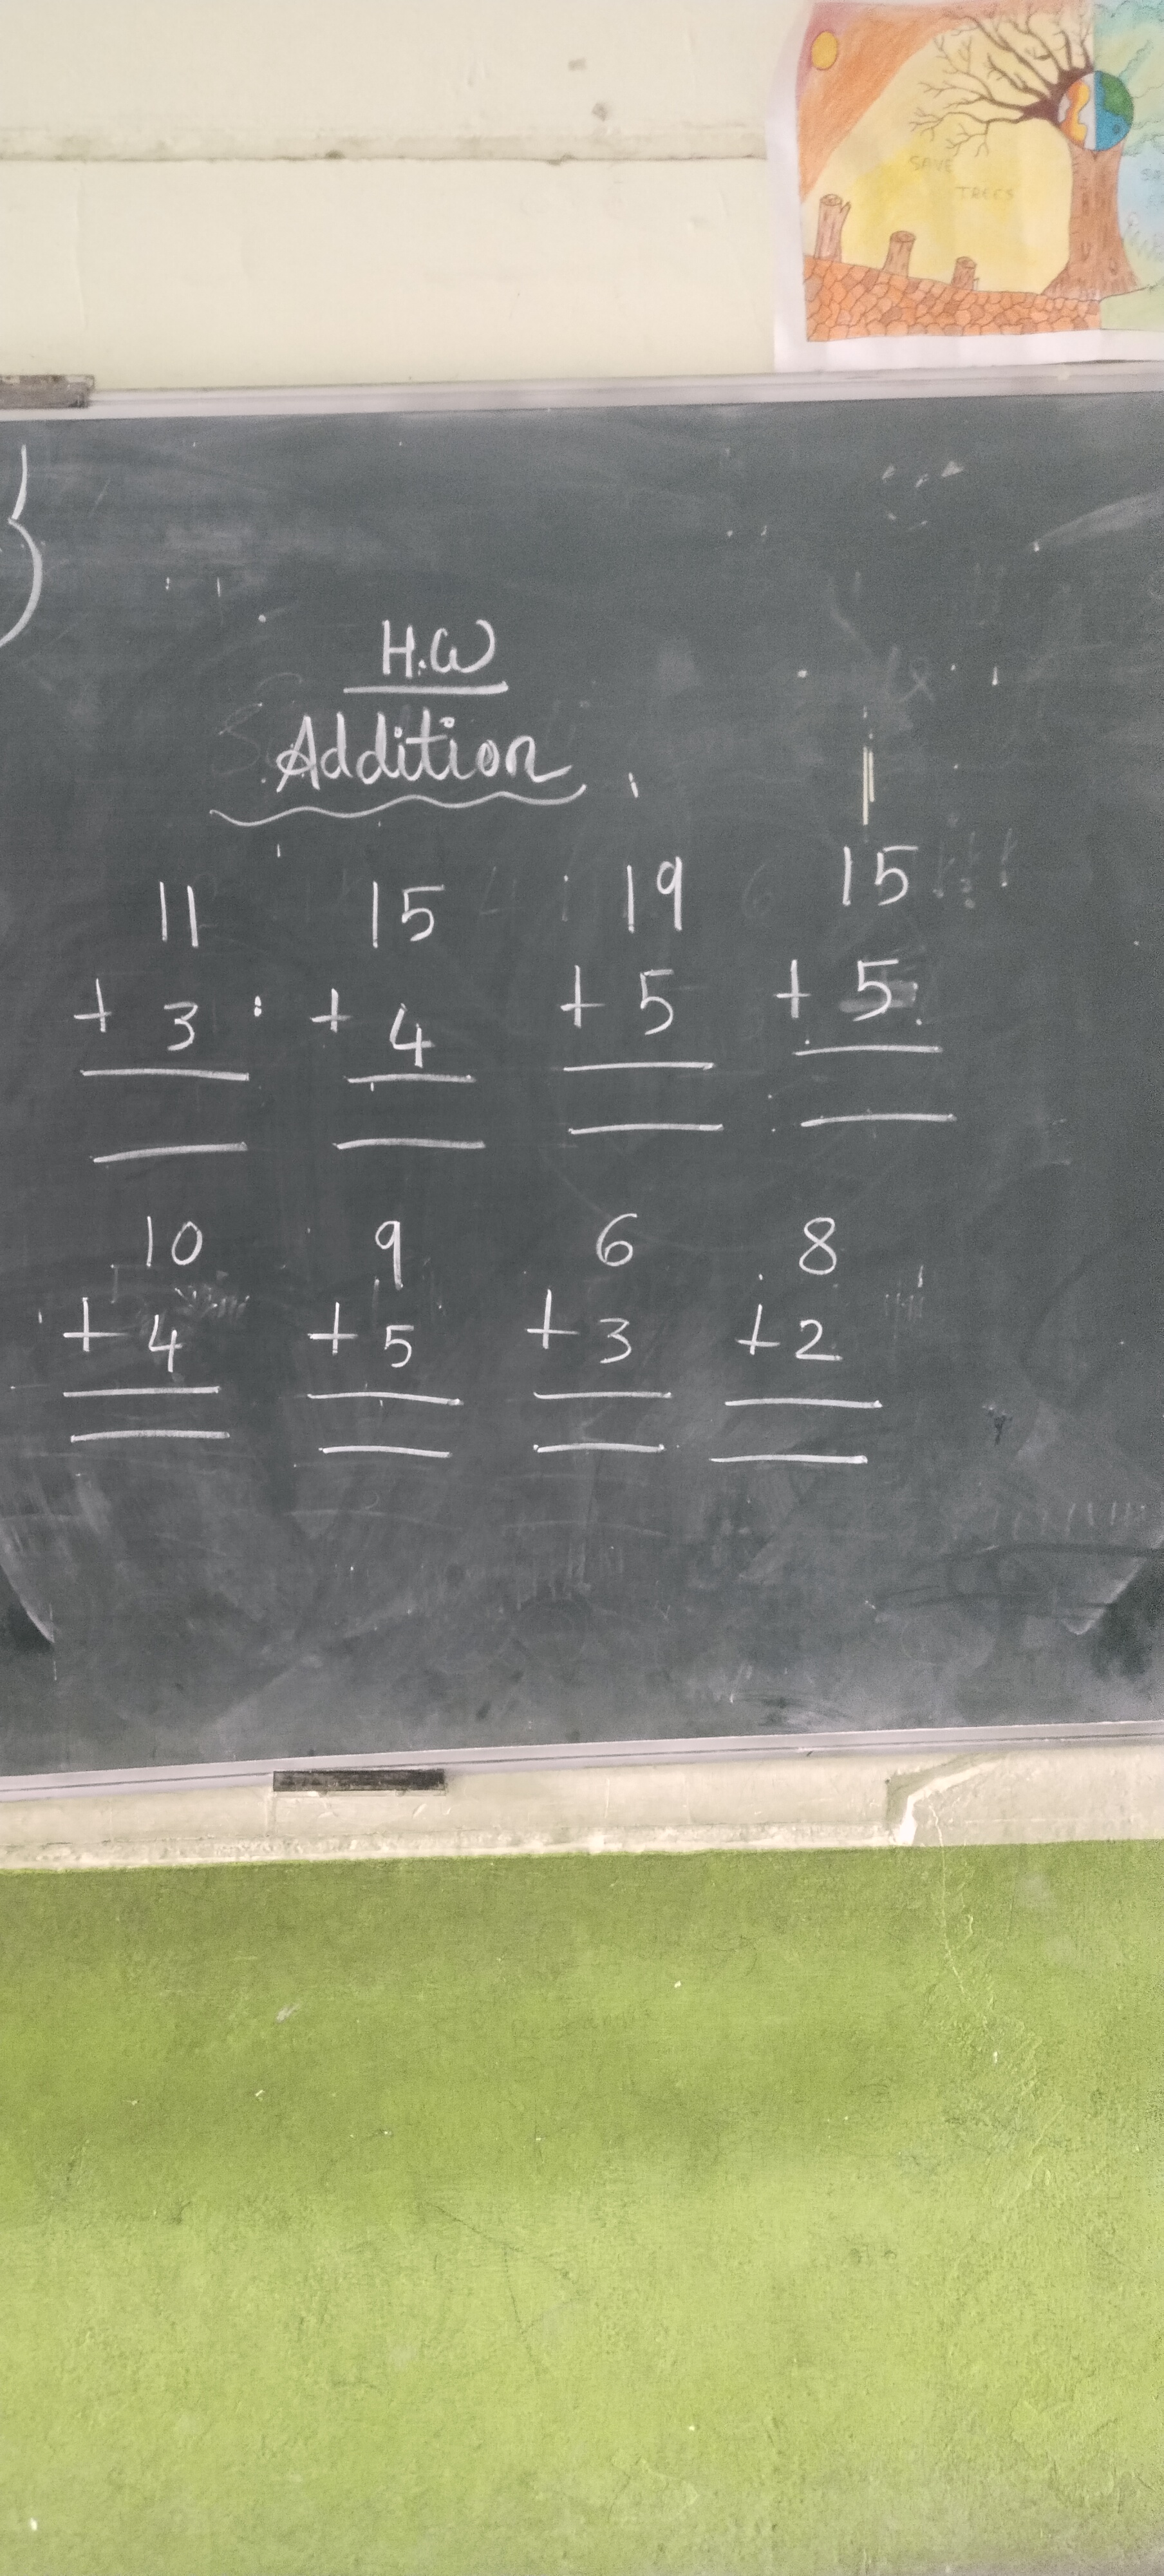 SAVE
TREES
H.W
Addition
11 15 19 15
+ 3 + 4 + 5 + 5
10 9 6 8
+ 4 + 5 + 3 + 2